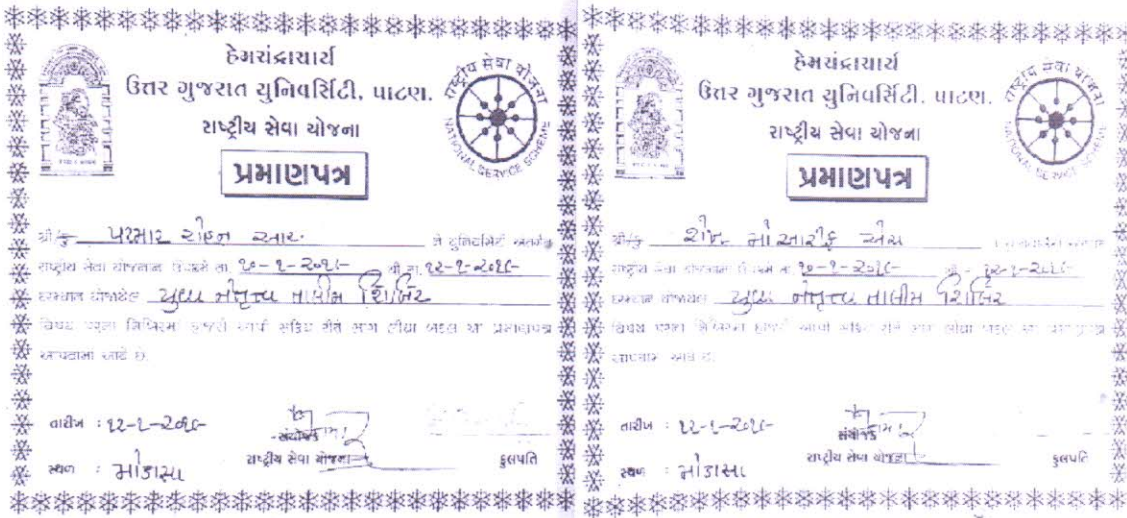 હેમચંદ્રાચાર્ય
ઉત્તર ગુજરાત યુનિવર્સિટી, પાટણ.
રાષ્ટ્રીય સેવા યોજના
પ્રમાણપત્ર
राष्ट्रीय सेवा योजना
NATIONAL SERVICE SCHEME
શ્રી/કુ પરમાર રોહન આર. ને યુનિવર્સિટી અંતર્ગત
રાષ્ટ્રીય સેવા યોજનાના ઉપક્રમે તા. ૧૦-૧-૨૦૧૯ થી તા. ૧૨-૧-૨૦૧૯
દરમ્યાન યોજાયેલ યુવા નેતૃત્વ તાલીમ શિબિર
વિષય પરના શિબિરમાં હાજરી આપી સક્રિય રીતે ભાગ લીધા બદલ આ પ્રમાણપત્ર
આપવામાં આવે છે.
તારીખ : ૧૨-૧-૨૦૧૯
સંયોજક
રાષ્ટ્રીય સેવા યોજના
કુલપતિ
સ્થળ : મોડાસા
હેમચંદ્રાચાર્ય
ઉત્તર ગુજરાત યુનિવર્સિટી, પાટણ.
રાષ્ટ્રીય સેવા યોજના
પ્રમાણપત્ર
राष्ट्रीय सेवा योजना
NATIONAL SERVICE SCHEME
શ્રી/કુ શેખ મોઆરીફ એસ
રાષ્ટ્રીય સેવા યોજનાના ઉપક્રમે તા. ૧૦-૧-૨૦૧૯ થી ૧૨-૧-૨૦૧૯
દરમ્યાન યોજાયેલ યુવા નેતૃત્વ તાલીમ શિબિર
વિષય પરના શિબિરમાં હાજરી આપી સક્રિય રીતે ભાગ લીધા બદલ આ પ્રમાણપત્ર
આપવામાં આવે છે.
તારીખ : ૧૨-૧-૨૦૧૯
સંયોજક
રાષ્ટ્રીય સેવા યોજના
કુલપતિ
સ્થળ : મોડાસા